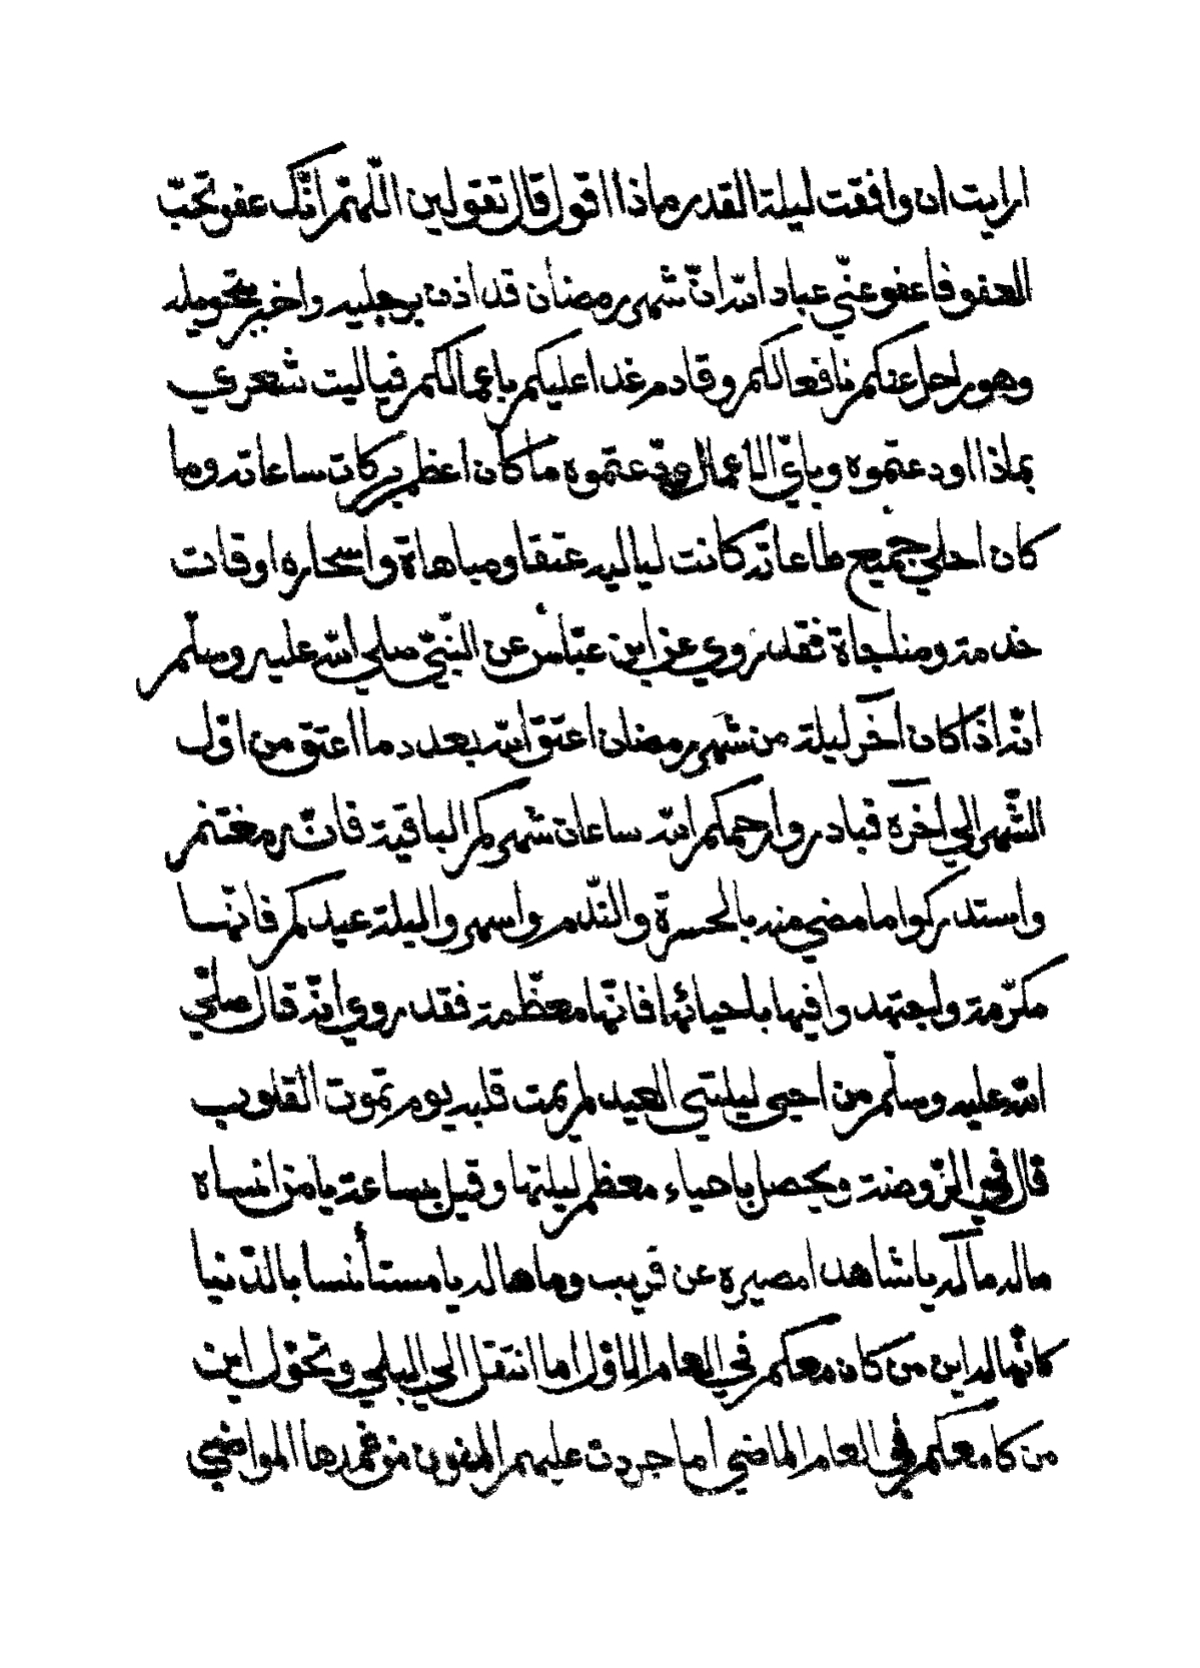 ارايت ان وافقت ليلة القدر ماذا اقول قال تقولين اللّهمّ انّك عفو تحبّ
العفو فأعفو عنّي عباد الله انّ شهر رمضان قد اذن برحليه واخبر بتحويله
وهو راحل عنكم بافعالكم وقادم غدا عليكم باعمالكم فياليت شعري
بماذا اودعتموه وباي الأعمال ودّعتموه ما كان اعظم بركات ساعاته وما
كان احلي جميع طاعاته كانت لياليه عتقا ومباهاة واسحاره اوقات
خدمة ومناجاة فقد روي عن ابن عبّاس عن النّبيّ صلي الله عليه وسلّم
انّه اذا كان آخر ليلة من شهر رمضان اعتق الله بعدد ما اعتق من اوّل
الشّهر الي آخره فبادروا رحمكم الله ساعات شهركم الباقية فانّه مغتنم
واستدركوا ما مضي منه بالحسرة والنّدم واسهروا ليلة عيدكم فانّها
مكرّمة واجتهدوا فيها باحيائها فانّها معظّمة فقد روي انّه قال صلّي
الله عليه وسلّم من احيي ليلتي العيد لم يمت قلبه يوم تموت القلوب
قال في الرّوضة ويحصل باحياء معظم ليلتها وقيل بساعة يا من انساه
ماله مآله يا شاهدا مصيره عن قريب وماهاله يا مستأنسا بالدّنيا
كانّهاله اين من كان معكم في العام الاوّل اما انتقل الي البلي وتحوّل اين
من كا معكم في العام الماضي اما جردت عليهم المنون من غمدها المواضي